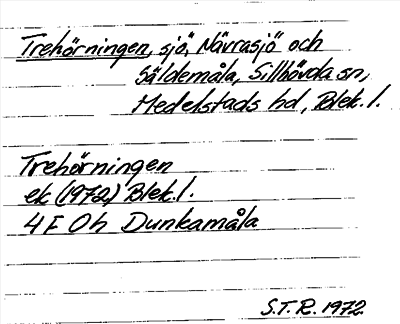 Trehörningen, sjö, Nävrasjö och
Säldemåla, Sillhövda sn,
Medelstads hd, Blek. l.
Trehörningen
ek (1972) Blek. l.
4 F 0h Dunkamåla
S.T.R. 1972